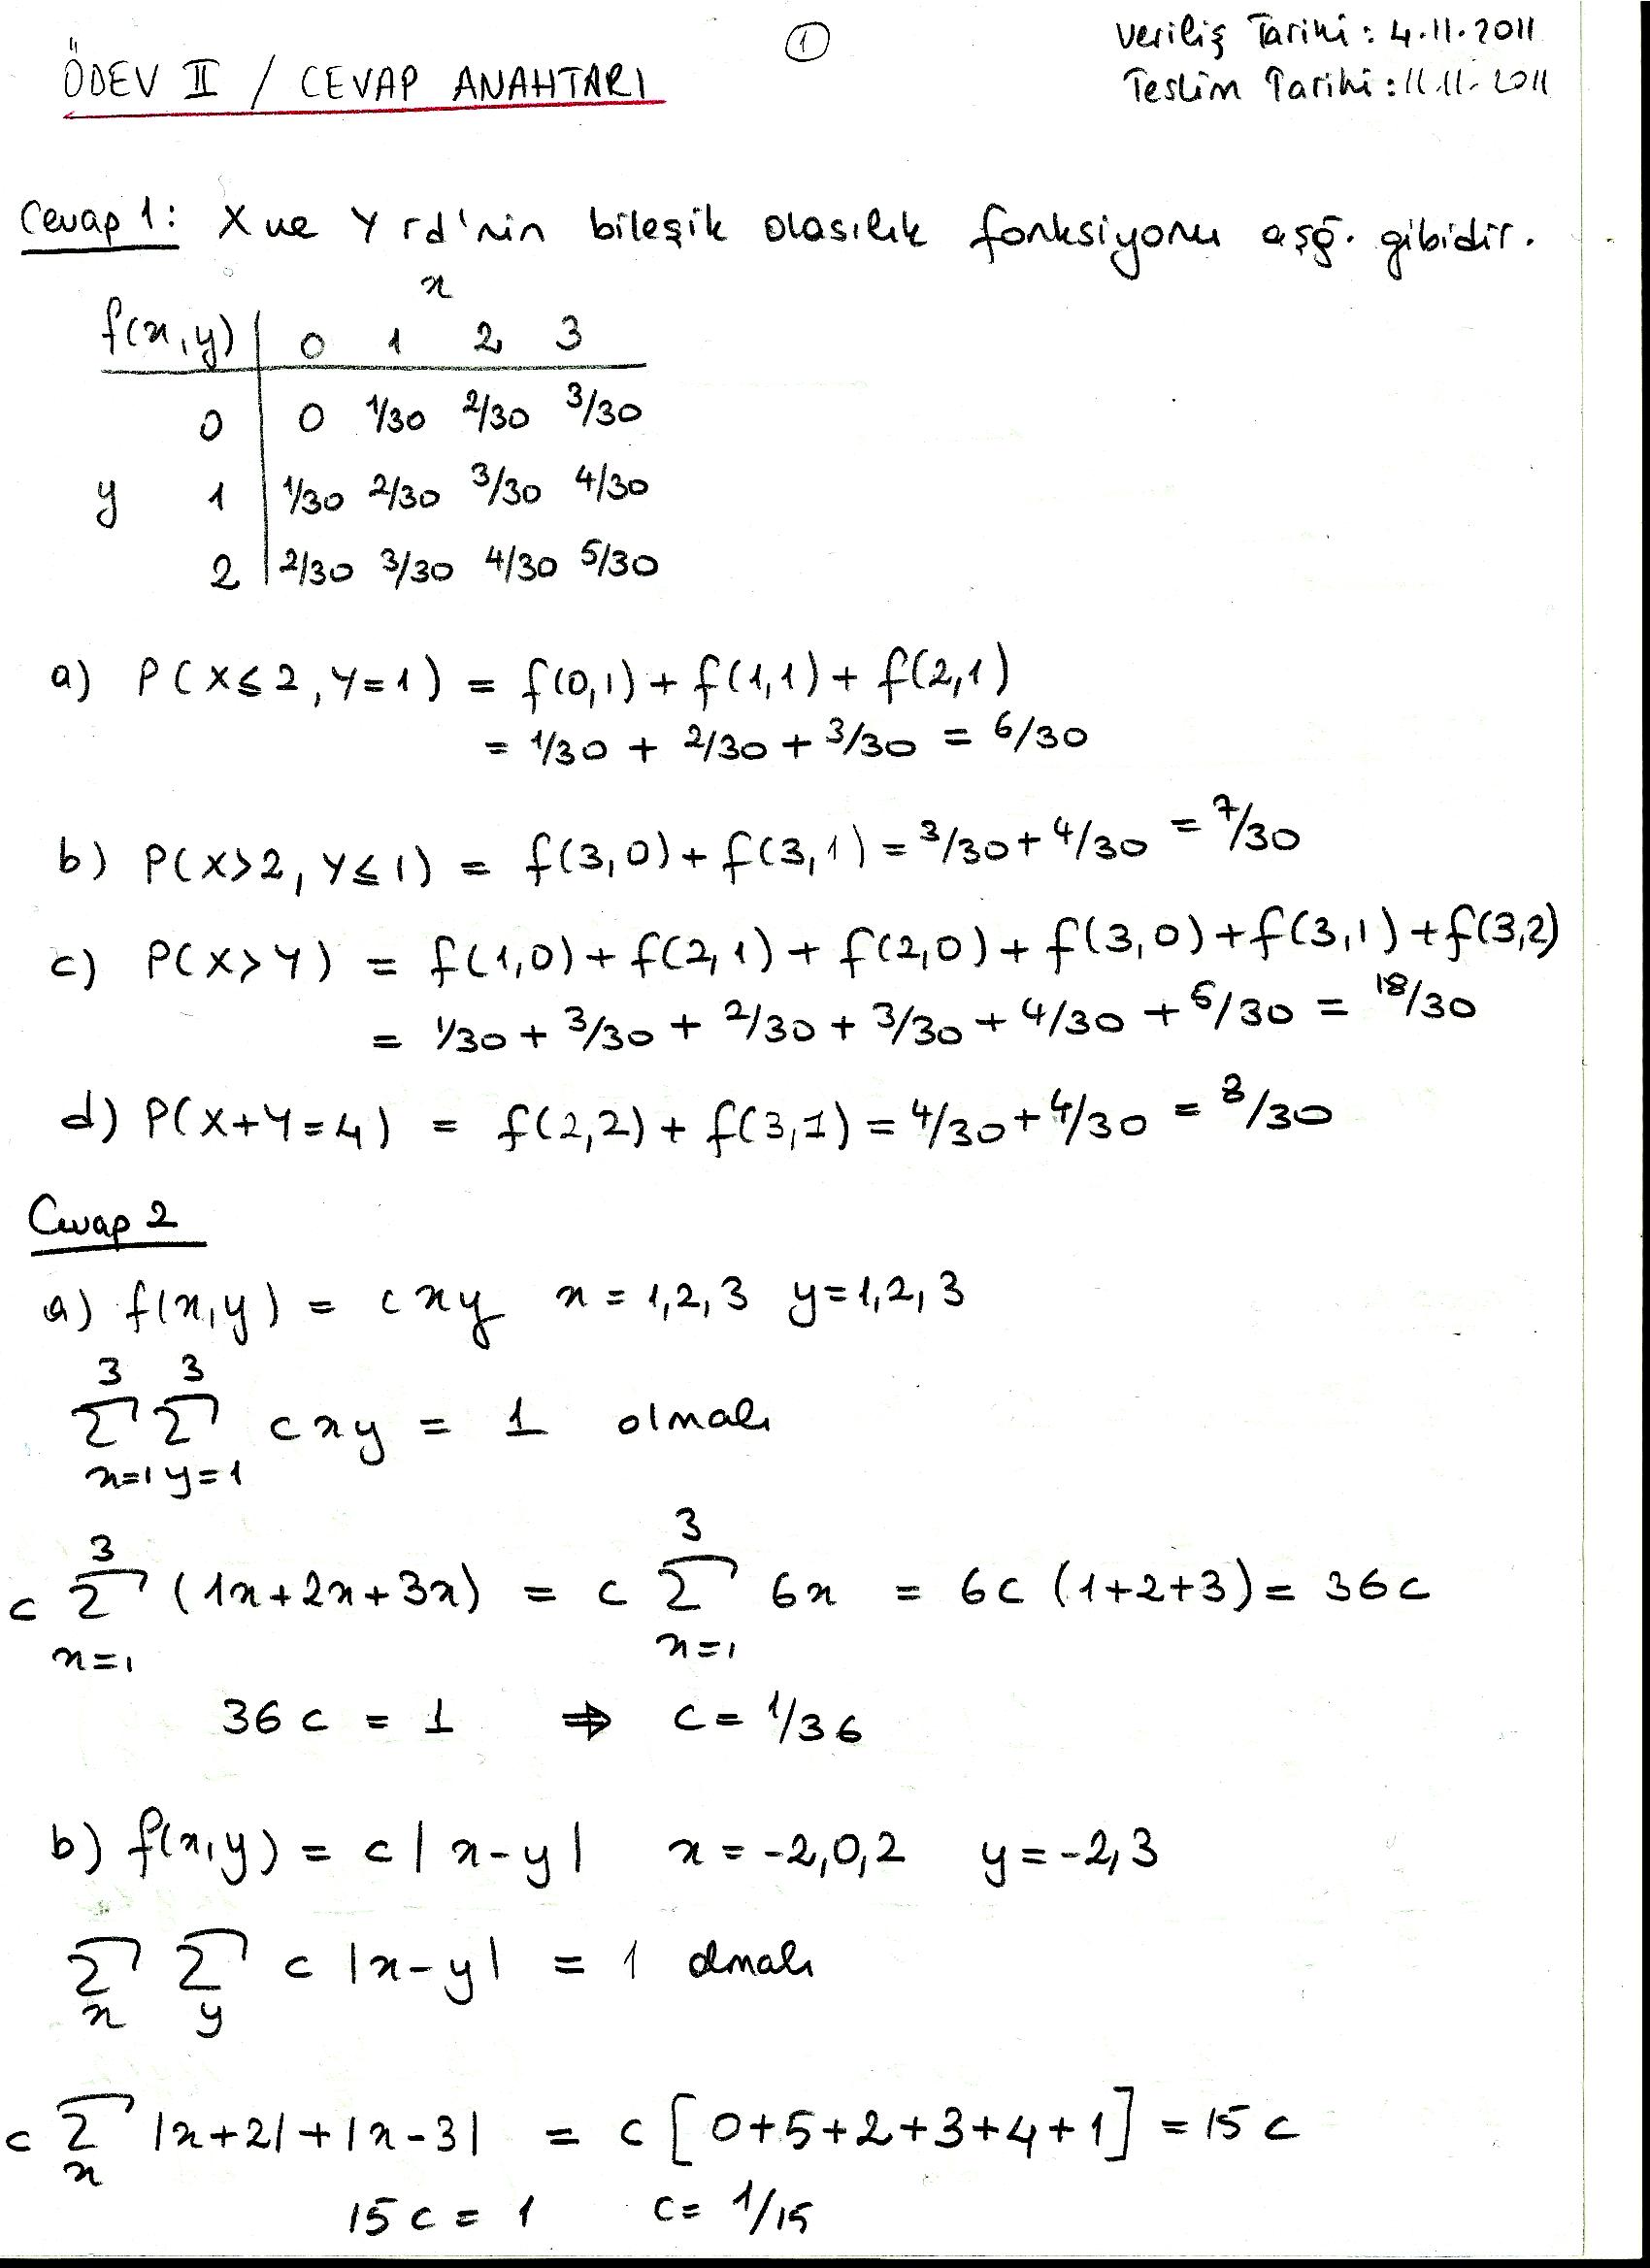 ①
Veriliş Tarihi : 4.11.2011
ÖDEV II / CEVAP ANAHTARI
Teslim Tarihi : 11.11.2011
Cevap 1: X ve Y rd'nin bileşik olasılık fonksiyonu aşğ. gibidir.
x
f(x,y) 0 1 2 3
0 0 1/30 2/30 3/30
y 1 1/30 2/30 3/30 4/30
2 2/30 3/30 4/30 5/30
a) P(X≤2, Y=1) = f(0,1) + f(1,1) + f(2,1)
= 1/30 + 2/30 + 3/30 = 6/30
b) P(X>2, Y≤1) = f(3,0) + f(3,1) = 3/30 + 4/30 = 7/30
c) P(X>Y) = f(1,0) + f(2,1) + f(2,0) + f(3,0) + f(3,1) + f(3,2)
= 1/30 + 3/30 + 2/30 + 3/30 + 4/30 + 5/30 = 18/30
d) P(X+Y=4) = f(2,2) + f(3,1) = 4/30 + 4/30 = 8/30
Cevap 2
a) f(x,y) = cxy x = 1,2,3 y=1,2,3
3 3
∑ ∑ cxy = 1 olmalı
x=1 y=1
3 3
c ∑ (1x+2x+3x) = c ∑ 6x = 6c (1+2+3) = 36c
x=1 x=1
36c = 1 ⇒ c = 1/36
b) f(x,y) = c|x-y| x = -2,0,2 y = -2,3
∑ ∑ c|x-y| = 1 olmalı
x y
c ∑ |x+2|+|x-3| = c [0+5+2+3+4+1] = 15c
x
15c = 1 c = 1/15